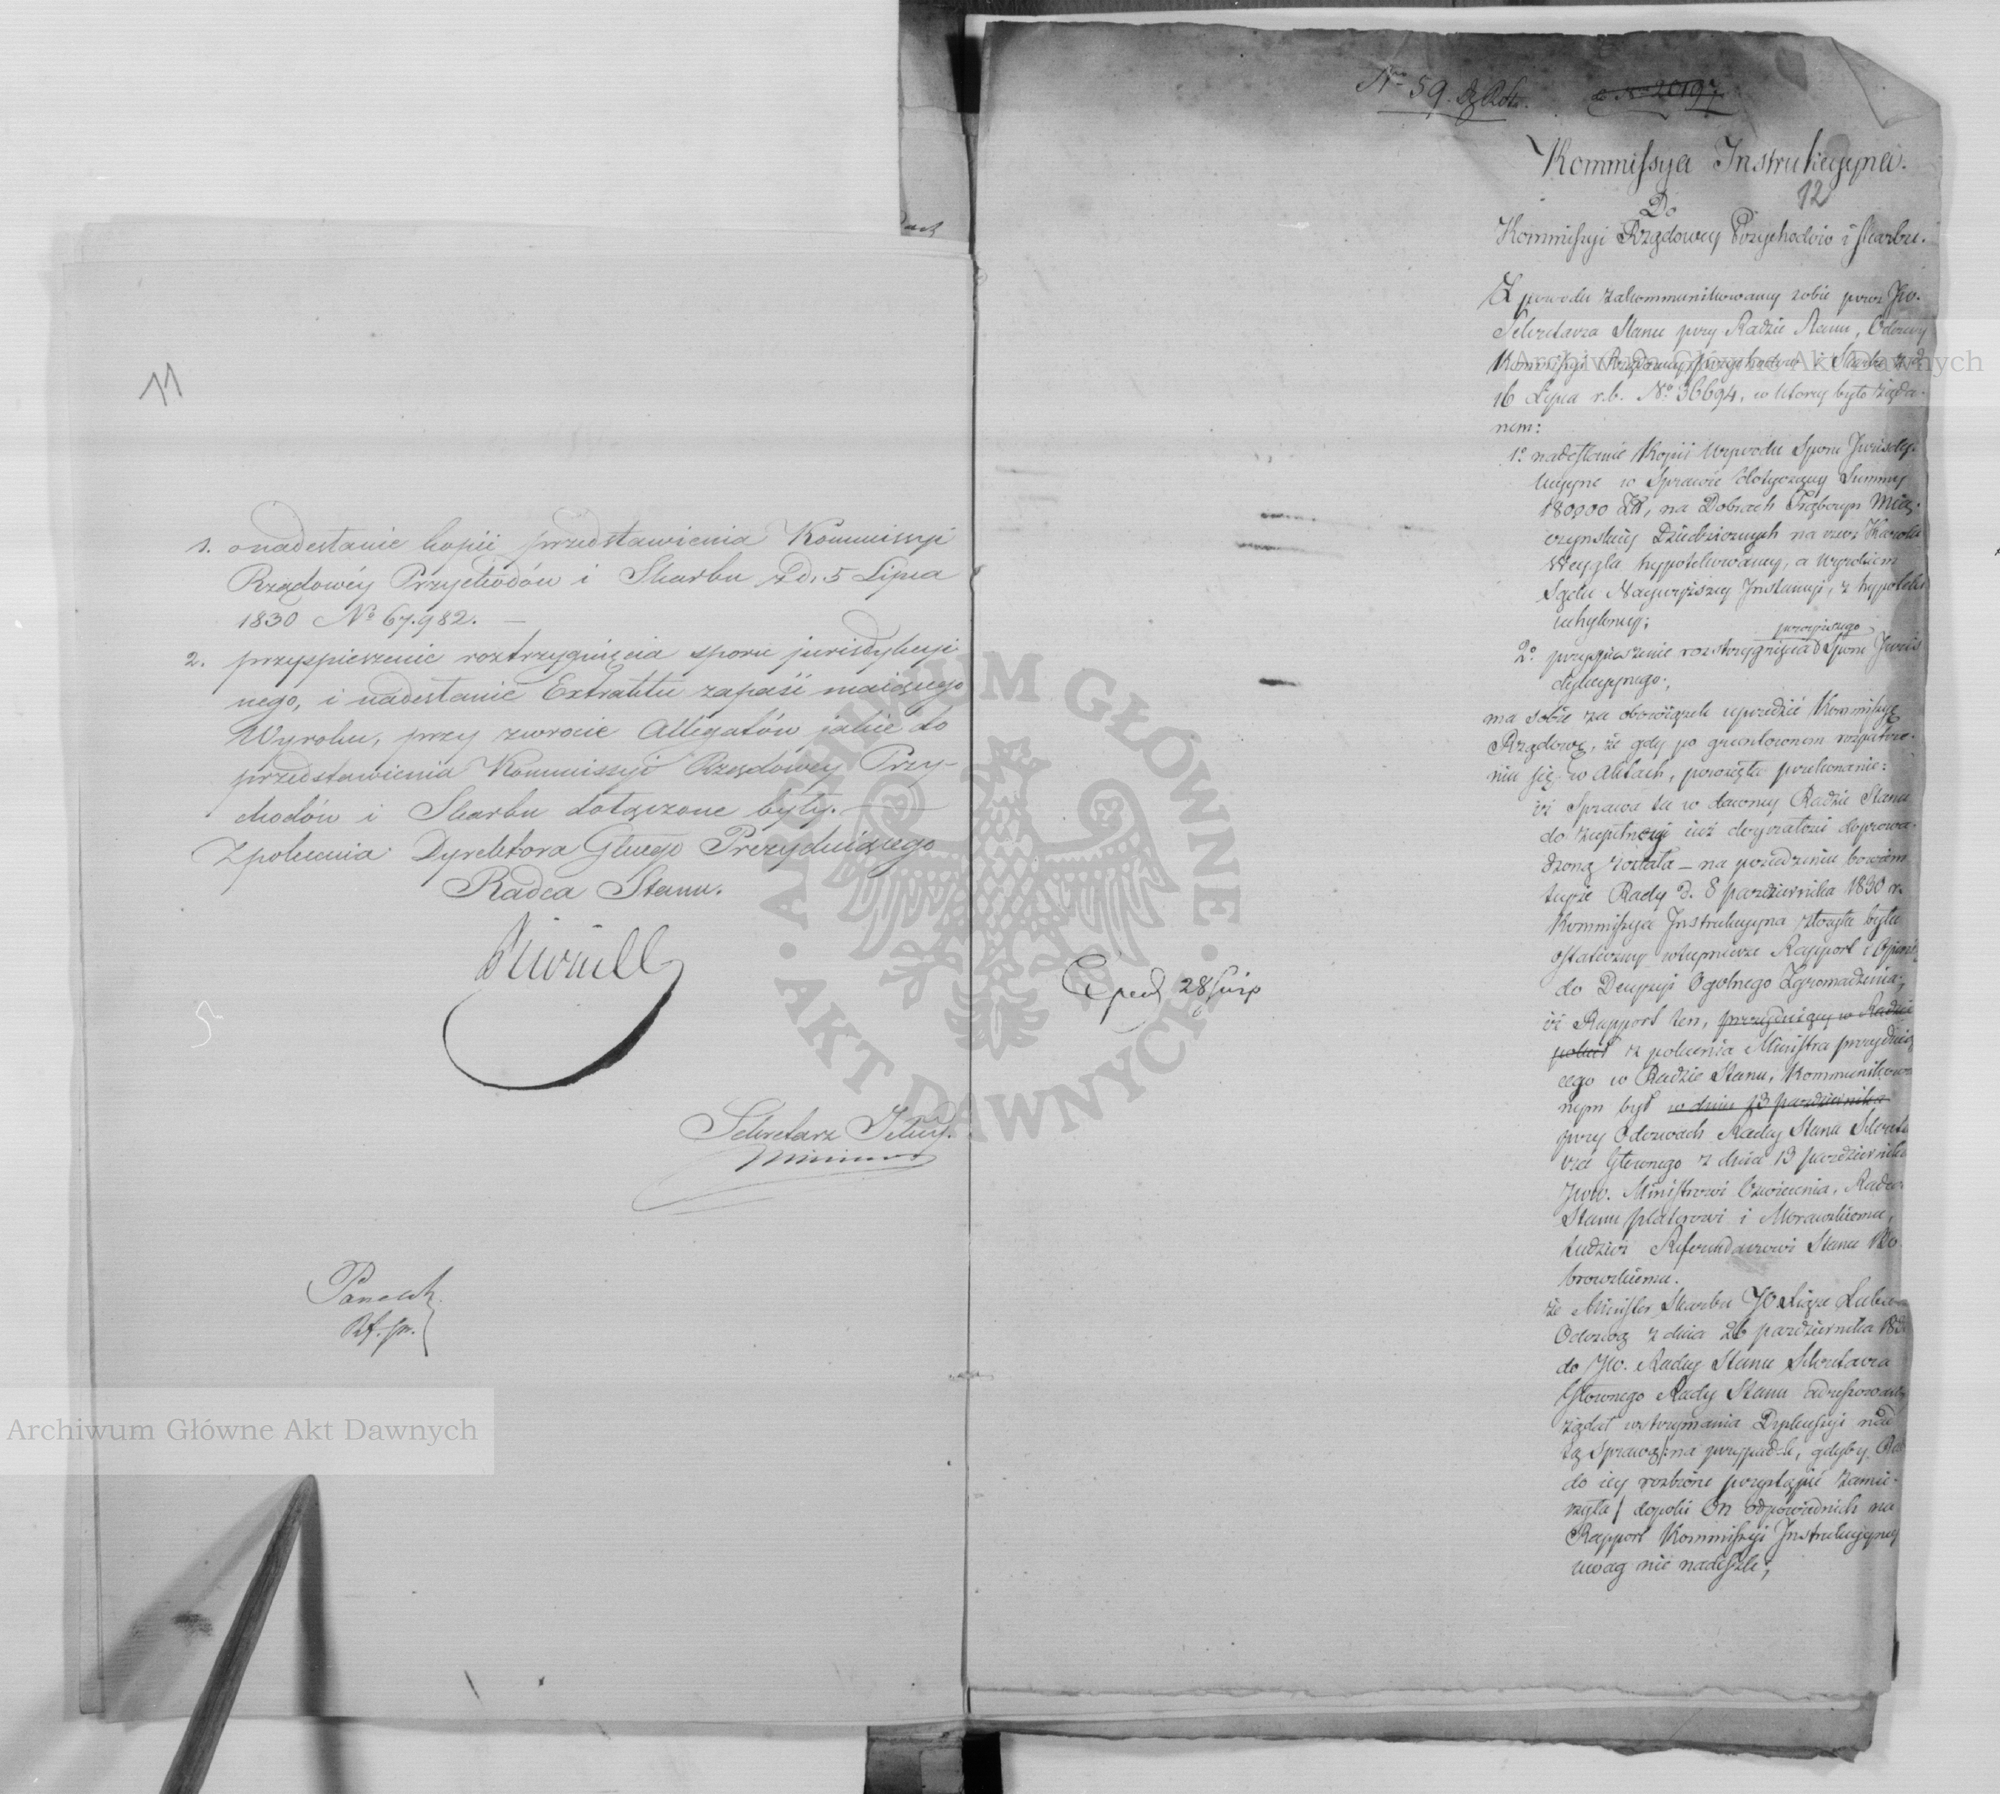 11
1. o nadesłanie kopii przedstawienia Kommissyi
Rządowéy Przychodów i Skarbu z d. 5 Lipca
1830 No 67.982. —
2. przyspieszenie roztrzygnięcia sporu jurisdykcyi
nego, i nadesłanie Extraktu zapaść maiącego
Wyroku, przy zwrocie Allegatów jakie do
przedstawienia Kommissyi Rządowey Przy-
chodów i Skarbu dołączone były. —
Z polecenia Dyrektora Głnego Prezyduiącego
Radca Stanu.
Sekretarz Jlny.
Archiwum Główne Akt Dawnych
ARCHIWUM GŁÓWNE
AKT DAWNYCH
28
No 59.
20197
Kommissya Instrukcyyna.
12
Do
Kommissyi Rządowey Przychodów i Skarbu.
Z powodu zakommunikowaney sobie przez JW.
Sekretarza Stanu przy Radzie Stanu, Odezwy
Kommissyi Rządowey Przychodów i Skarbu z d.
Archiwum Główne Akt Dawnych
16 Lipca r.b. No 36694, w ktorey było żąda-
nem:
1o nadesłanie Kopii Wywodu Sporu Jurisdy-
kcyyne w Sprawie dotyczącey Summy
180000 Zł, na Dobrach Trąbczyn Mią-
czynskiey Dziedzicznych na rzecz Karola
hypotekowaney, a Wyrokiem
Sądu Naywyższey Instancyi, z hypoteki
uchyloney;
2o przyspieszenie rozstrzygnięcia powyższego Sporu Juris
dykcyynego;
ma sobie za obowiązek uprzedzić Kommissyę
Rządową, że gdy po gruntownem rozpatrze-
niu się w Aktach, powzięła przekonanie:
iż Sprawa ta w dawney Radzie Stanu
do zupełney iuż doyrzałości doprowa-
dzoną została — na posiedzeniu bowiem
teyże Rady d. 8 pazdziernika 1830 r.
Kommissya Instrukcyyna złożyła była
ostateczny w tey mierze Rapport i Opinię
do Decyzyi Ogolnego Zgromadzenia;
iż Rapport ten, prezyduiący w Radzie
polecił z polecenia Ministra prezyduią
cego w Radzie Stanu, Kommunikowa
nym był w dniu 13 pazdziernika
przy Odezwach Rady Stanu Sekreta
rza Głownego z dnia 13 pazdziernika
JWW. Ministrowi Oswiecenia, Radco
Stanu Platerowi i Morawskiemu,
tudzież Referendarzowi Stanu Do
browskiemu.
że Minister Skarbu JO Xiąże Lubec
Odezwą z dnia 26 pazdziernika 183
do JW. Radcy Stanu Sekretarza
Głownego Rady Stanu adressowaną
żądał wstrzymania Dyskussyi nad
tą Sprawą/: na przypadek, gdyby Rada
do iey rozbioru przystąpić zamie-
rzyła/ dopoki On odpowiednich na
Rapport Kommissyi Instrukcyyney
uwag nie nadeszle;